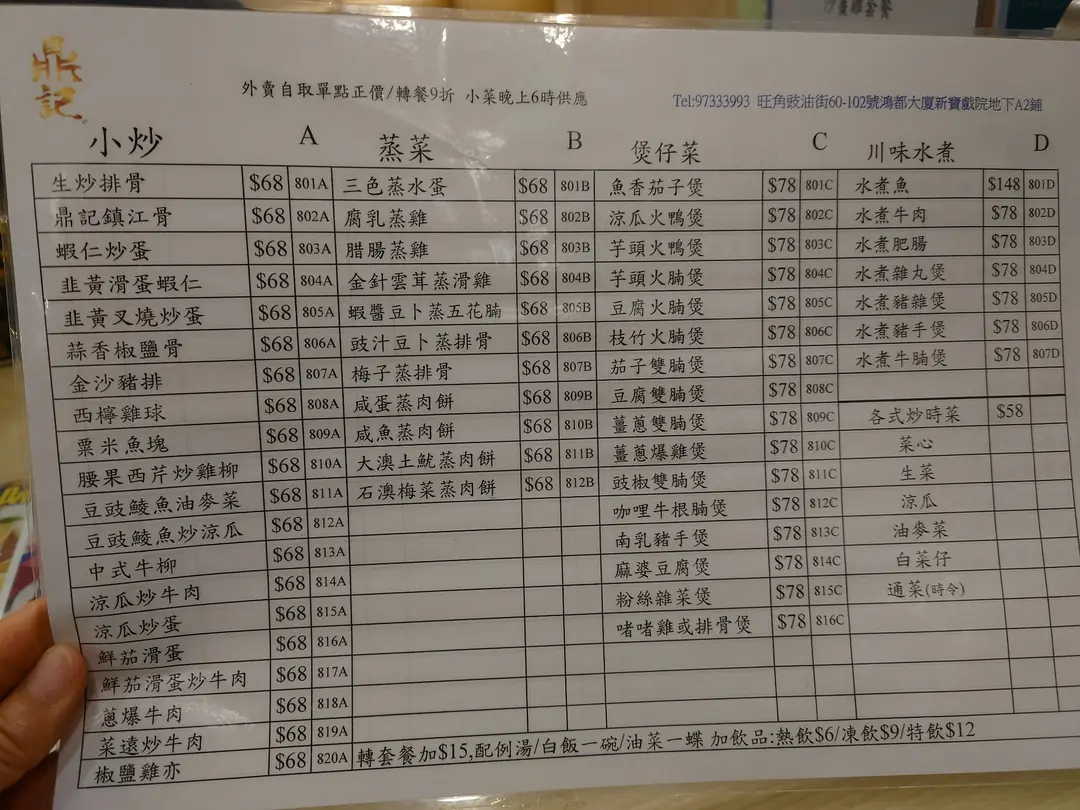 沙薑雞套餐
鼎記
外賣自取單點正價/轉餐9折 小菜晚上6時供應
Tel:97333993 旺角豉油街60-102號鴻都大廈新寶戲院地下A2鋪
小炒 A
生炒排骨 $68 801A
鼎記鎮江骨 $68 802A
蝦仁炒蛋 $68 803A
韭黃滑蛋蝦仁 $68 804A
韭黃叉燒炒蛋 $68 805A
蒜香椒鹽骨 $68 806A
金沙豬排 $68 807A
西檸雞球 $68 808A
粟米魚塊 $68 809A
腰果西芹炒雞柳 $68 810A
豆豉鯪魚油麥菜 $68 811A
豆豉鯪魚炒涼瓜 $68 812A
中式牛柳 $68 813A
涼瓜炒牛肉 $68 814A
涼瓜炒蛋 $68 815A
鮮茄滑蛋 $68 816A
鮮茄滑蛋炒牛肉 $68 817A
蔥爆牛肉 $68 818A
菜遠炒牛肉 $68 819A
椒鹽雞亦 $68 820A
蒸菜 B
三色蒸水蛋 $68 801B
腐乳蒸雞 $68 802B
腊腸蒸雞 $68 803B
金針雲茸蒸滑雞 $68 804B
蝦醬豆卜蒸五花腩 $68 805B
豉汁豆卜蒸排骨 $68 806B
梅子蒸排骨 $68 807B
咸蛋蒸肉餅 $68 809B
咸魚蒸肉餅 $68 810B
大澳土魷蒸肉餅 $68 811B
石澳梅菜蒸肉餅 $68 812B
煲仔菜 C
魚香茄子煲 $78 801C
涼瓜火鴨煲 $78 802C
芋頭火鴨煲 $78 803C
芋頭火腩煲 $78 804C
豆腐火腩煲 $78 805C
枝竹火腩煲 $78 806C
茄子雙腩煲 $78 807C
豆腐雙腩煲 $78 808C
薑蔥雙腩煲 $78 809C
薑蔥爆雞煲 $78 810C
豉椒雙腩煲 $78 811C
咖哩牛根腩煲 $78 812C
南乳豬手煲 $78 813C
麻婆豆腐煲 $78 814C
粉絲雜菜煲 $78 815C
啫啫雞或排骨煲 $78 816C
川味水煮 D
水煮魚 $148 801D
水煮牛肉 $78 802D
水煮肥腸 $78 803D
水煮雜丸煲 $78 804D
水煮豬雜煲 $78 805D
水煮豬手煲 $78 806D
水煮牛腩煲 $78 807D
各式炒時菜 $58
菜心
生菜
涼瓜
油麥菜
白菜仔
通菜(時令)
轉套餐加$15,配例湯/白飯一碗/油菜一蝶 加飲品:熱飲$6/凍飲$9/特飲$12